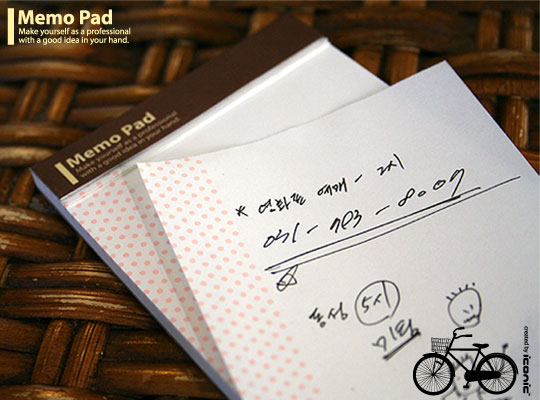 Memo Pad
Make yourself as a professional
with a good idea in your hand.
Memo Pad
Make yourself as a professional
with a good idea in your hand.
* 영화표 예매 - 2시
031 - 903 - 8009
동성 5시
미팅
created by iconic